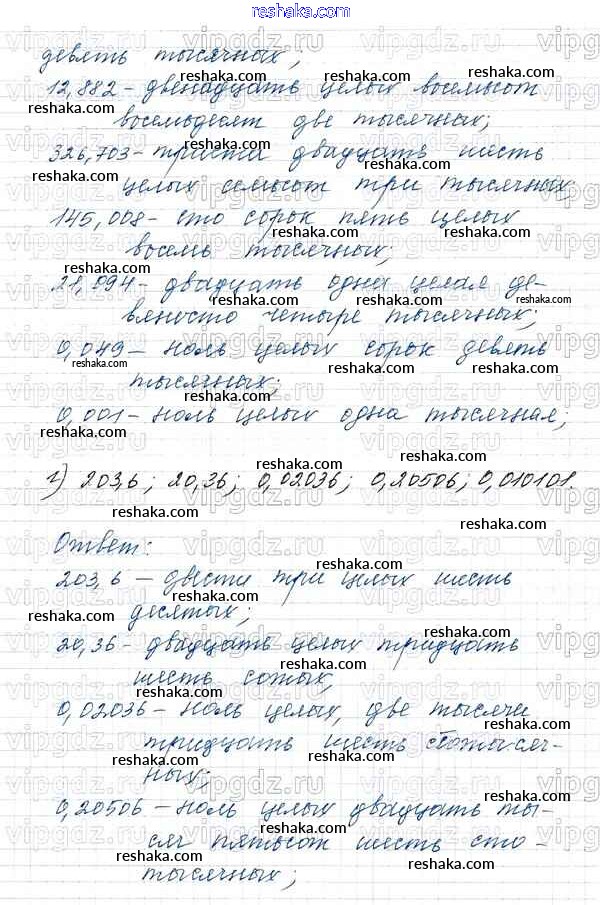 reshaka.com
девять тысячных;
12,882 - двенадцать целых восемьсот
восемьдесят две тысячных;
326,703 - триста двадцать шесть
целых семьсот три тысячных
145,008 - сто сорок пять целых
восемь тысячных;
21,094 - двадцать одна целая де-
вяносто четыре тысячных;
0,049 - ноль целых сорок девять
тысячных;
0,001 - ноль целых одна тысячная;
г) 203,6; 20,36; 0,02036; 0,20506; 0,010101.
Ответ:
203,6 - двести три целых шесть
десятых;
20,36 - двадцать целых тридцать
шесть сотых;
0,02036 - ноль целых, две тысячи
тридцать шесть стотысяч-
ных;
0,20506 - ноль целых двадцать ты-
сяч пятьсот шесть сто-
тысячных;